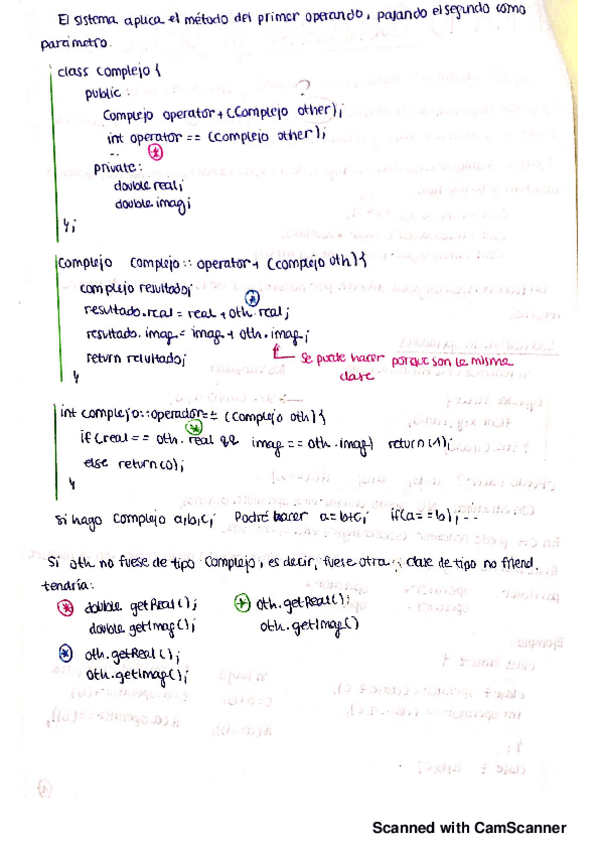 El sistema aplica el método del primer operando, pasando el segundo como
parámetro.
class Complejo {
public:
?
Complejo operator+ (Complejo other);
int operator == (Complejo other);
..
private:
double real;
double imag;
};
Complejo Complejo:: operator+ (Complejo oth) {
complejo resultado;
resultado.real = real + oth.real;
resultado.imag = imag + oth.imag;
return resultado;
se puede hacer porque son la misma
clase
}
int complejo::operador== (Complejo oth) {
if (real == oth.real && imag == oth.imag) return (1);
else return(0);
}
Si hago Complejo a,b,c; Podré hacer a=b+c; if(a==b); ...
Si oth no fuese de tipo Complejo, es decir, fuese otra clase de tipo no friend.
tendría:
* double getReal();
double getImag();
+ oth.getReal();
oth.getImag()
* oth.getReal();
oth.getImag();
Scanned with CamScanner